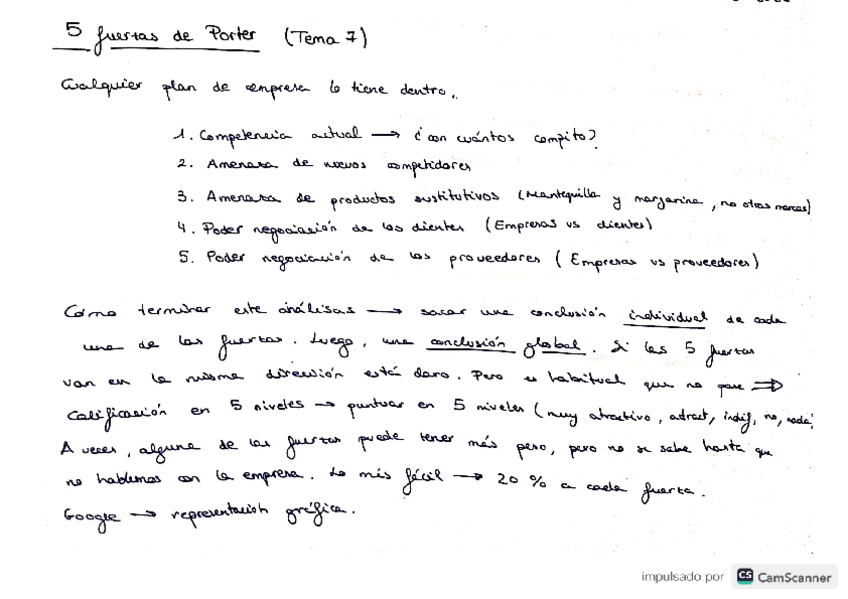 5 fuerzas de Porter (Tema 7)
Cualquier plan de empresa lo tiene dentro..
1. Competencia actual → ¿con cuántos compito?
2. Amenaza de nuevos competidores
3. Amenaza de productos sustitutivos (Mantequilla y margarina, no otras marcas)
4. Poder negociación de los clientes (Empresas vs clientes)
5. Poder negociación de los proveedores (Empresas vs proveedores)
Cómo terminar este análisis → sacar una conclusión individual de cada
una de las fuerzas. Luego, una conclusión global. Si las 5 fuerzas
van en la misma dirección está claro. Pero es habitual que no pase ⇒
Calificación en 5 niveles → puntuar en 5 niveles (muy atractivo, atract, indif, no, nada)
A veces, alguna de las fuerzas puede tener más peso, pero no se sabe hasta que
no hablemos con la empresa. Lo más fácil → 20 % a cada fuerza.
Google → representación gráfica.
impulsado por CS CamScanner